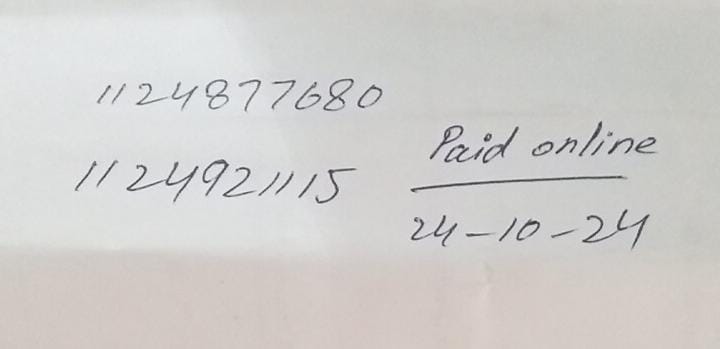 1124877680
1124921115
Paid online
24-10-24